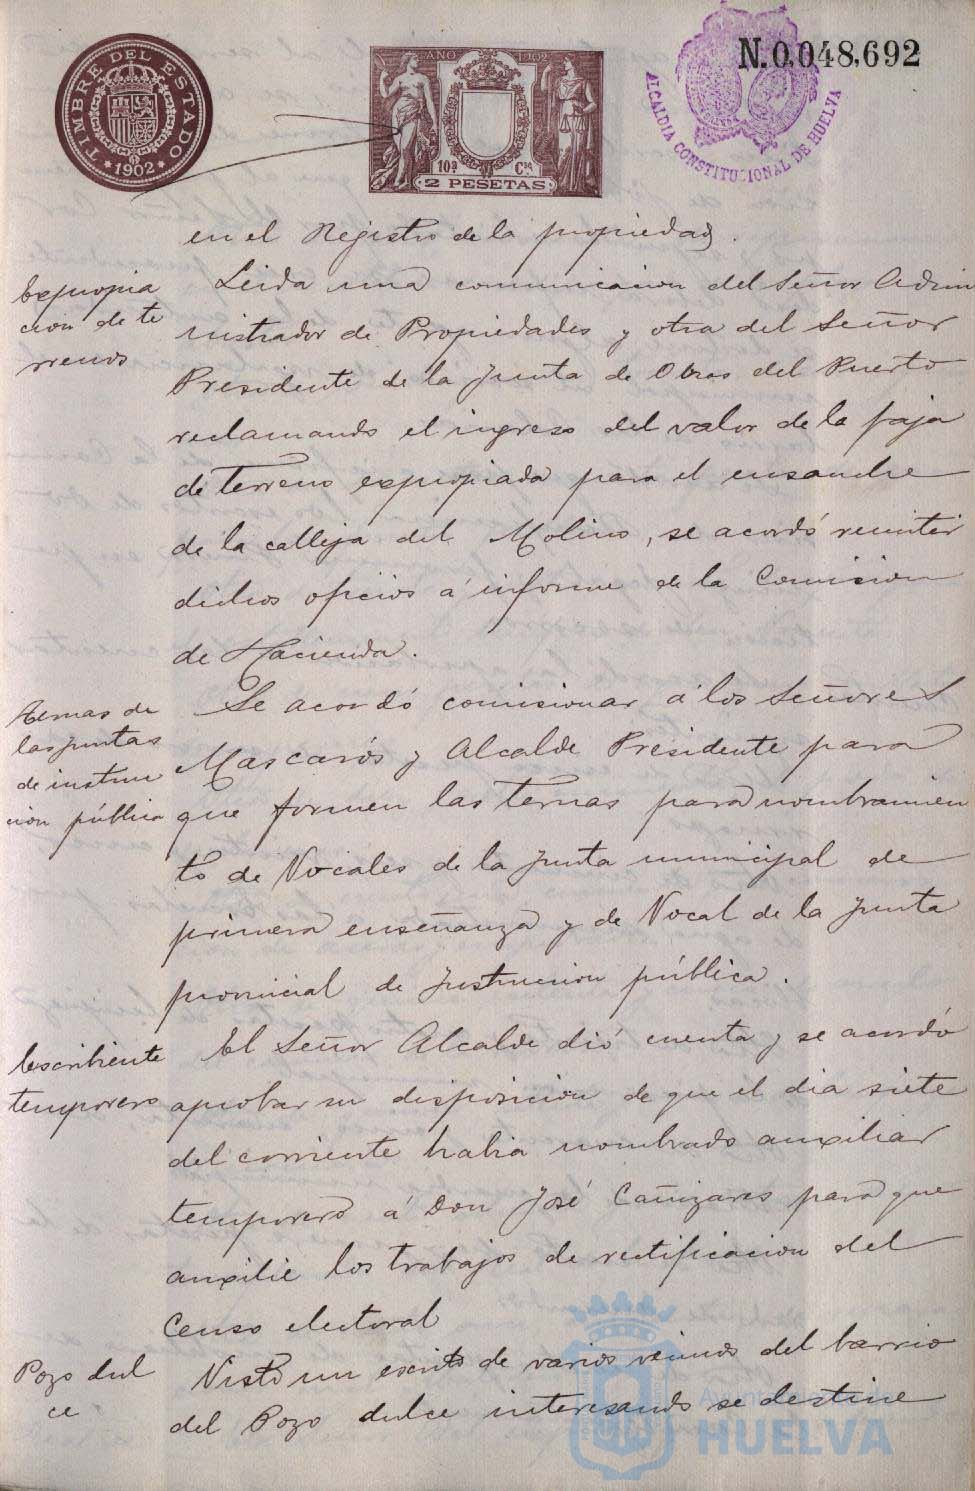 TIMBRE DEL ESTADO
1902
AÑO 1902
10ª Cse
2 PESETAS
N.0,048,692
ALCALDIA CONSTITUCIONAL DE HUELVA
en el Registro de la propiedad.
Expropia
cion de te
rrenos
Leida una comunicacion del Señor Admi
nistrador de Propiedades y otra del Señor
Presidente de la Junta de Obras del Puerto
reclamando el ingreso del valor de la faja
de terreno expropiada para el ensanche
de la calleja del Molino, se acordó remitir
dichos oficios á informe de la Comision
de Hacienda.
Ternas de
las juntas
de instruc
cion pública
Se acordó comisionar á los Señores
Mascarós y Alcalde Presidente para
que formen las ternas para nombramien
to de Vocales de la Junta municipal de
primera enseñanza y de Vocal de la Junta
provincial de Instruccion pública.
Escribiente
temporero
El Señor Alcalde dió cuenta y se acordó
aprobar su disposicion de que el dia siete
del corriente habia nombrado auxiliar
temporero á Don José Cañizares para que
auxilie los trabajos de rectificacion del
Censo electoral
Pozo dul
ce
Visto un escrito de varios vecinos del barrio
del Pozo dulce interesando se destine
Ayuntamiento de
HUELVA